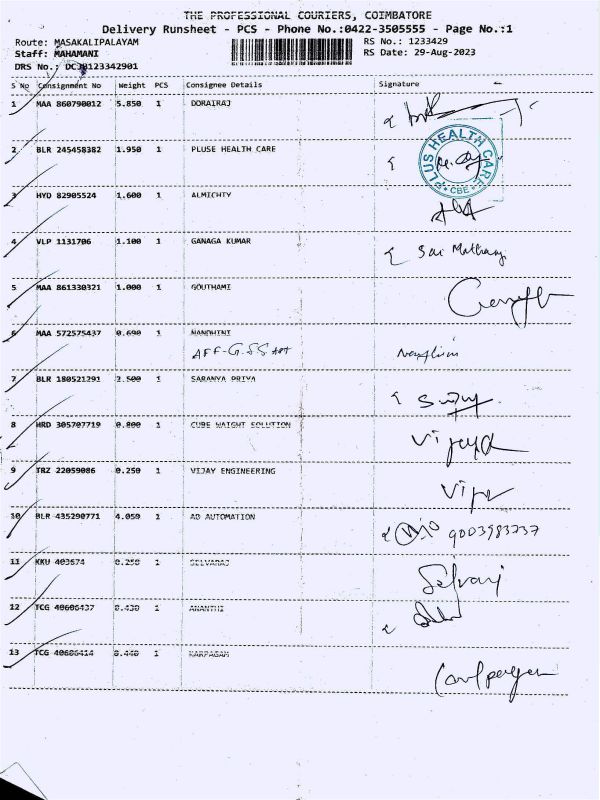 THE PROFESSIONAL COURIERS, COIMBATORE
Delivery Runsheet - PCS - Phone No.:0422-3505555 - Page No.:1
Route: MASAKALIPALAYAM RS No.: 1233429
Staff: MAHAMANI RS Date: 29-Aug-2023
DRS No.:
S No Consignment No Weight PCS Consignee Details Signature
1 MAA 860790012 5.850 1 DORAIRAJ
2 BLR 245458382 1.950 1 PLUSE HEALTH CARE
PLUS HEALTH CARE CBE
3 HYD 82905524 1.600 1 ALMICHTY
4 VLP 1131706 1.100 1 GANAGA KUMAR
5 MAA 861330321 1.000 1 GOUTHAMI
6 MAA 572575437 0.690 1 NANDHINI
7 BLR 180521291 2.500 1 SARANYA PRIYA
8 HRD 305707719 0.800 1 CUBE WAIGHT SOLUTION
Vijaya
9 TRZ 22059086 0.250 1 VIJAY ENGINEERING
10 BLR 435290771 4.050 1 AB AUTOMATION
9003983237
11 KKU 403574 0.250 1 SELVARAJ
Selvaraj
12 TCG 40606437 0.430 1 ANANTHI
13 TCG 40606414 0.440 1 KARPAGAM